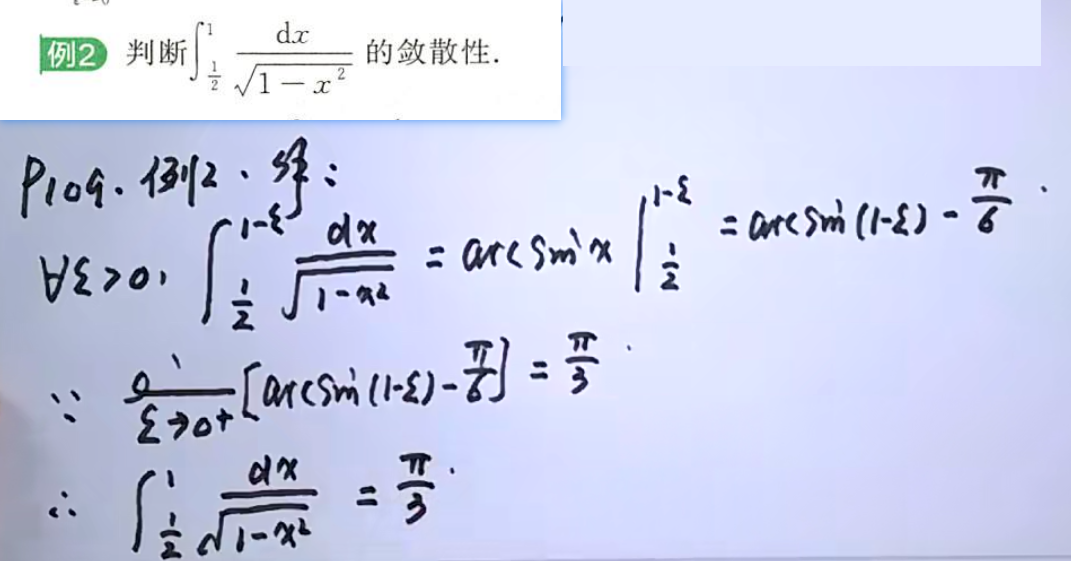 例2 判断∫_{1/2}^{1} dx/√(1-x²) 的敛散性.
P109. 例2. 解:
∀ε>0, ∫_{1/2}^{1-ε} dx/√(1-x²) = arcsin x |_{1/2}^{1-ε} = arcsin(1-ε) - π/6.
∵ [arcsin(1-ε) - π/6] = π/3.
∴ ∫_{1/2}^{1} dx/√(1-x²) = π/3.